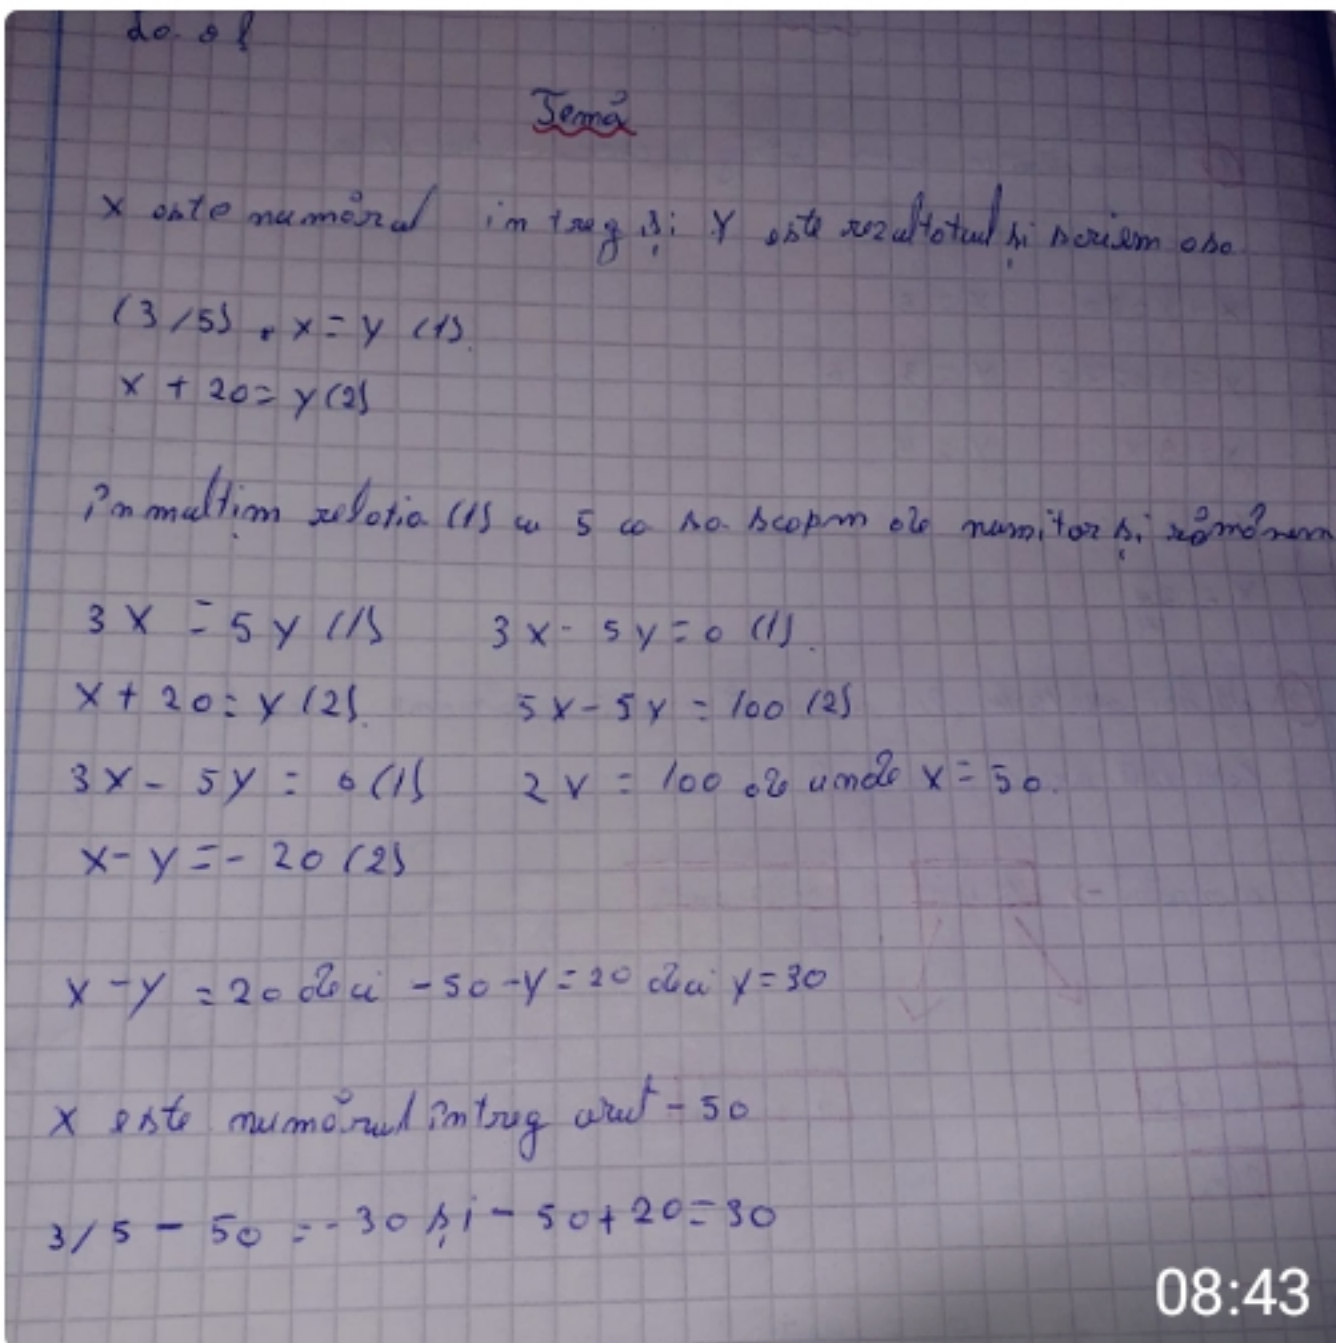 Temă
x este numărul întreg și y este rezultatul și scriem asa
(3/5) . x = y (1)
x + 20 = y (2)
înmulțim relatia (1) cu 5 ca sa scapm de numitor și rămânem
3x = 5y (1) 3x - 5y = 0 (1).
x + 20 = y (2). 5x - 5y = 100 (2)
3x - 5y = 0 (1) 2x = 100 de unde x = 50.
x - y = - 20 (2)
x - y = 20 deci - 50 - y = 20 deci y = 30
x este numărul întreg cerut - 50
3/5 - 50 = - 30 și - 50 + 20 = 30
08:43